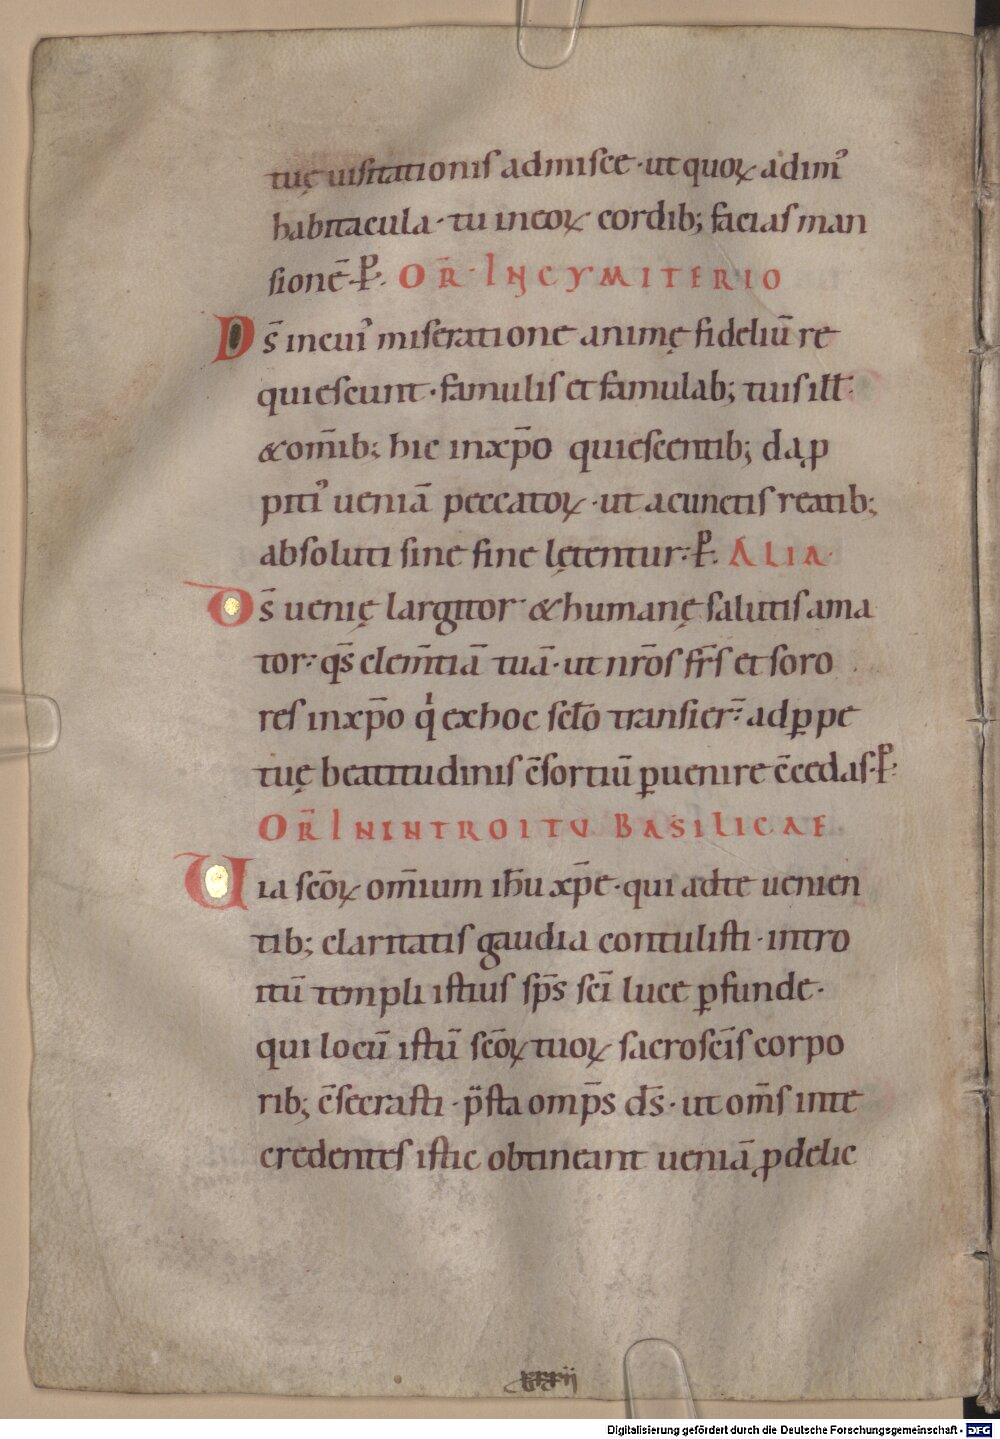 tuę uisitationis admisce · ut quoꝝ adimꝰ
habitacula · tu in eoꝝ cordib; facias man
sionē · P̱. OR̄ · IN CYMITERIO
Ds̄ in cuiꝰ miseratione animę fideliū re
quiescunt · famulis et famulab; tuis ill̄ ·
& om̄ib; hic in xp̄o quiescentib; da ꝓ
pitiꝰ ueniā peccatoꝝ · ut a cunctis reatib;
absoluti sine fine lętentur · P̱. ALIA ·
Ds̄ uenię largitor & humanę salutis ama
tor · qs̄ clem̄tiā tuā · ut nr̄os fr̄s et soro
res in xp̄o q̇ ex hoc sclō transier̄ · ad ꝑpe
tuę beatitudinis c̄sortiū ꝑuenire c̄cedas · P̱.
OR̄ IN INTROITU BASILICAE ·
Uia sc̄oꝝ om̄ium ih̄u xp̄e · qui ad te uenien
tib; claritatis gaudia contulisti · intro
itū templi istius sp̄s sc̄i luce ꝑfunde ·
qui locū istū sc̄oꝝ tuoꝝ sacrosc̄is corpo
rib; c̄secrasti · p̄sta omp̄s ds̄ · ut om̄s in te
credentes istic obtineant ueniā ꝓ delic
xxxij
Digitalisierung gefördert durch die Deutsche Forschungsgemeinschaft - DFG